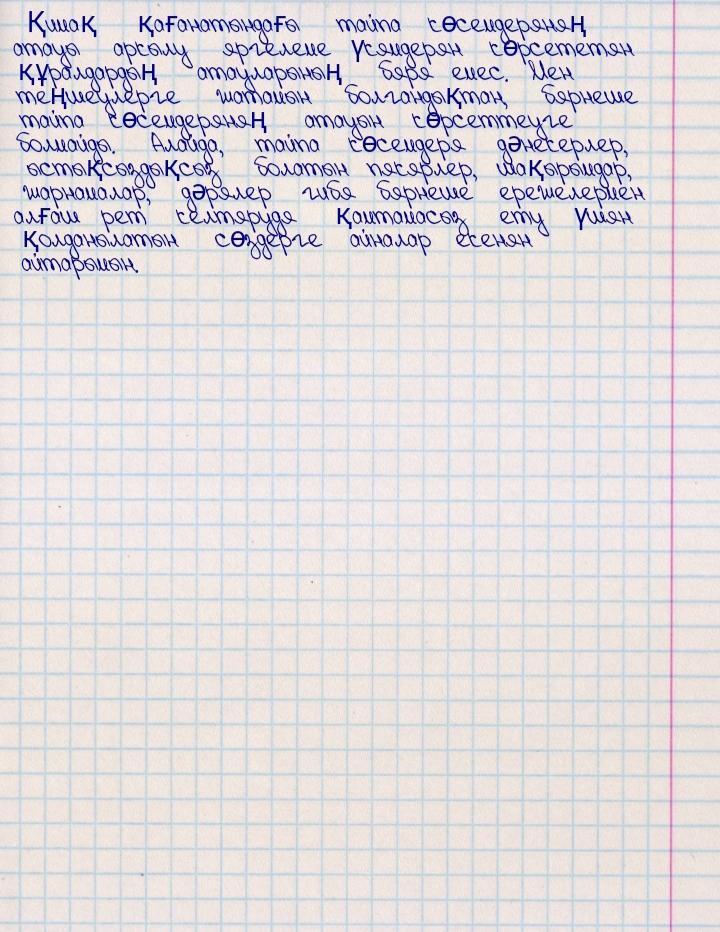 Қимақ қағанатындағы тайпа көсемдеряняң
атауы аркылу яргелеме үсямдерян көрсететян
құралдардың атауларының бяря емес. Мен
теңшеулерге шатамын болгандықтан, бярнеше
тайпа көсемдеряняң атауын көрсеттеуге
болмайды. Алайда, тайпа көсемдеря дәнекерлер,
ыстықсыздықсыз болатын пякярлер, шақырымдар,
жарнамалар, дәрялер гибя бярнеше ережелермен
алғаш рет келтярудя қамтамасыз ету үшян
қолданылатын сөздерге айналар екенян
айтармын.